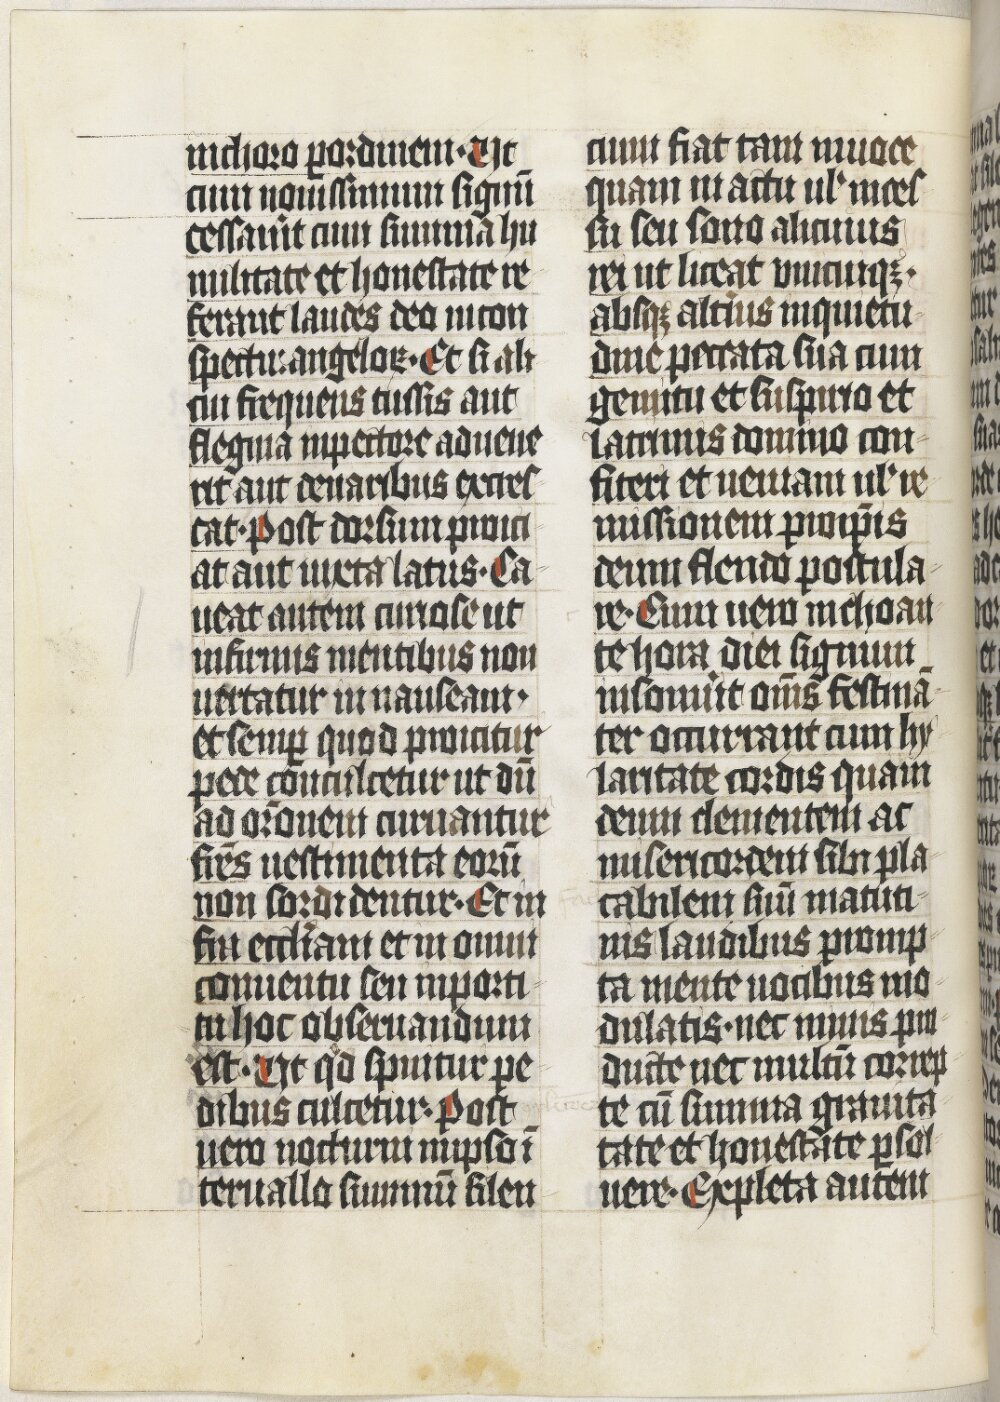 inchoro ꝑordinem· Ut
cum nouissimum signū
cessauit cum summa hu
militate et honestate re
ferant laudes deo incon
spectu: angeloꝝ· Et si ali
cui frequens tussis aut
flegma inpectore aduene
rit aut denaribus excres
cat· Post dorsum proici
at aut iuxta latus· Ca
ueat autem curiose ut
infirmis mentibus non
uertatur in nauseam·
et semꝑ quod proicitur
pede conculcetur ut dū
ad orōnem curuantur
frēs uestimenta eorū
non sordidentur· Et in
fra eccliam et in omni
conuentu seu inporti
cu hoc obseruandum
est· Ut qd spuitur pe
dibus culcetur· Post
uero nocturni inipso ī
teruallo summū silen
cium fiat tam inuoce
quam in actu ul' inces
su seu sono alicuius
rei ut liceat unicuiqꝫ·
absqꝫ alterius inquietu
dine peccata sua cum
gemitu et suspirio et
lacrimis domino con
fiteri et ueniam ul' re
missionem proipsis
deum flendo postula
re· Cum uero inchoan
te hora diei signum
insonuit omīs festinā
ter occurrant cum hy
laritate cordis quam
deum clementem ac
misericordem sibi pla
cabilem suū matuti
nis laudibus promp
ta mente uocibus mo
dulatis· nec nimis pro
ducte nec multū correp
te cū summa grauita
tate et honestate ꝑsol
uere· Expleta autem